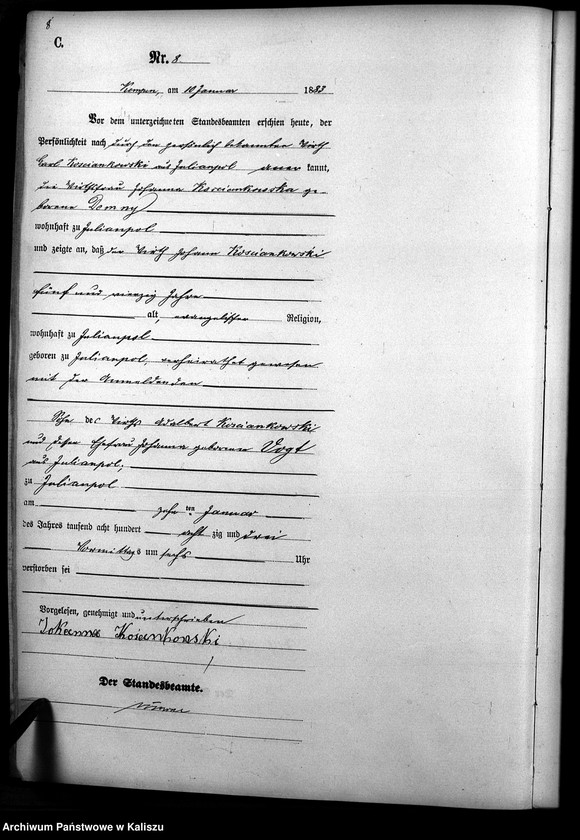 8
C.
Nr. 8
Kempen, am 10 Januar 1883
Vor dem unterzeichneten Standesbeamten erschien heute, der
Persönlichkeit nach, durch den persönlich bekannten Wirth
Carl Kosciankowski aus Julianpol anerkannt,
die Wirthsfrau Johanna Kosciankowska ge-
borene Demny
wohnhaft zu Julianpol
und zeigte an, daß der Wirth Johann Kosciankowski
fünf und vierzig Jahre
alt, evangelischer Religion,
wohnhaft zu Julianpol
geboren zu Julianpol, verheirathet gewesen
mit der Anmeldenden
Sohn des Wirths Adalbert Kosciankowski
und dessen Ehefrau Johanna geborenen Vogt
aus Julianpol,
zu Julianpol
am zehnten Januar
des Jahres tausend acht hundert achtzig und drei
Vormittags um sechs Uhr
verstorben sei
Vorgelesen, genehmigt und unterschrieben
Johanna Kosankowski
Der Standesbeamte.
Archiwum Państwowe w Kaliszu